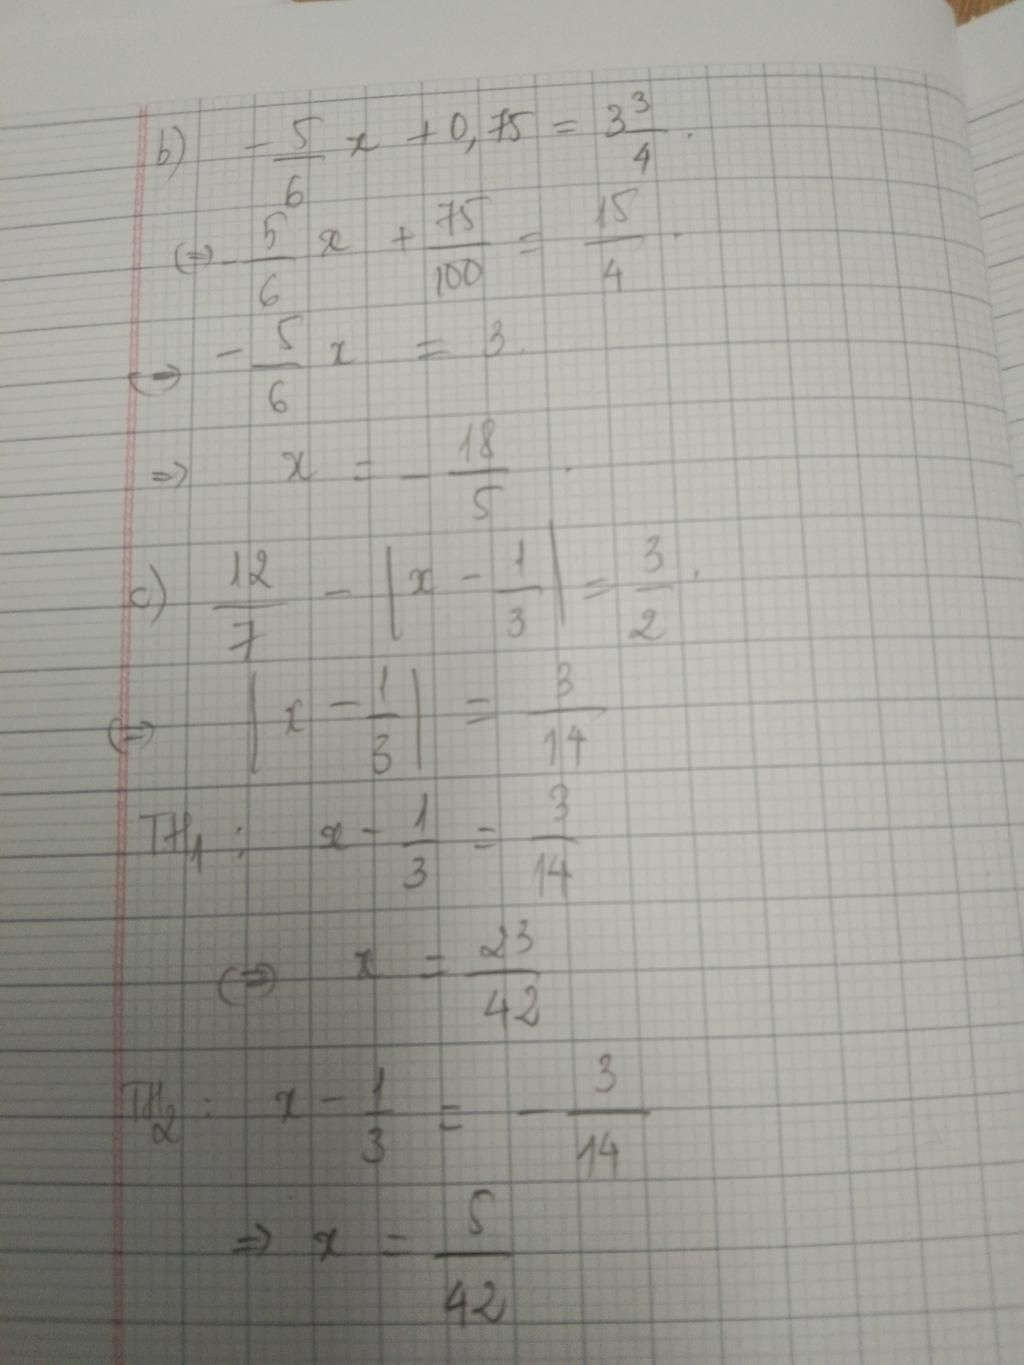 b) -5/6 x + 0,75 = 3 3/4.
⇔ -5/6 x + 75/100 = 15/4.
⇔ -5/6 x = 3.
⇒ x = -18/5.
c) 12/7 - |x - 1/3| = 3/2.
⇔ |x - 1/3| = 3/14
TH1: x - 1/3 = 3/14
⇔ x = 23/42
TH2: x - 1/3 = -3/14
⇒ x = 5/42